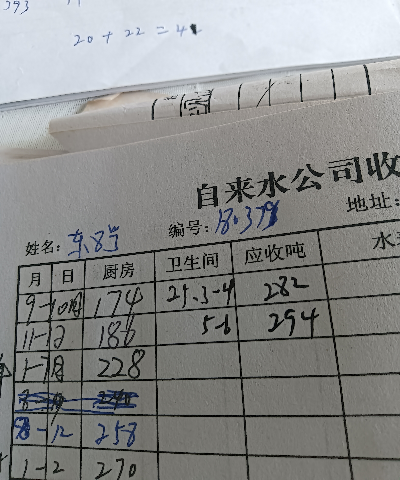 393
20 + 22 = 42
自来水公司收
姓名: 东8号 编号: 地址:
月 日 厨房 卫生间 应收吨 水
9-10月 174 25.3-4 282
11-12 186 5-6 294
1-7月 228
8-12 258
1-2 270